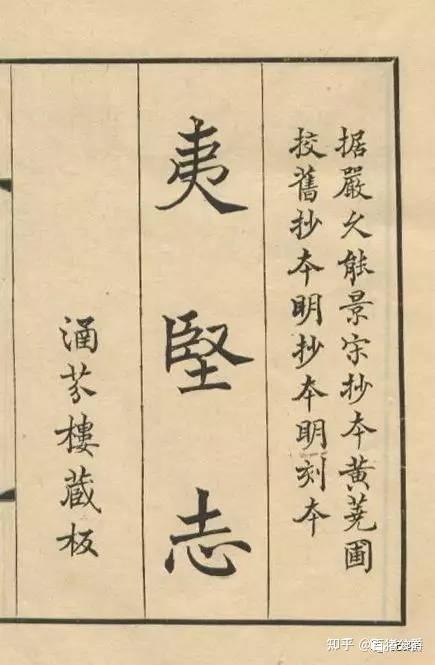 据嚴久能景宋抄本黄蕘圃
校舊抄本明抄本明刻本
夷堅志
涵芬樓藏板
知乎